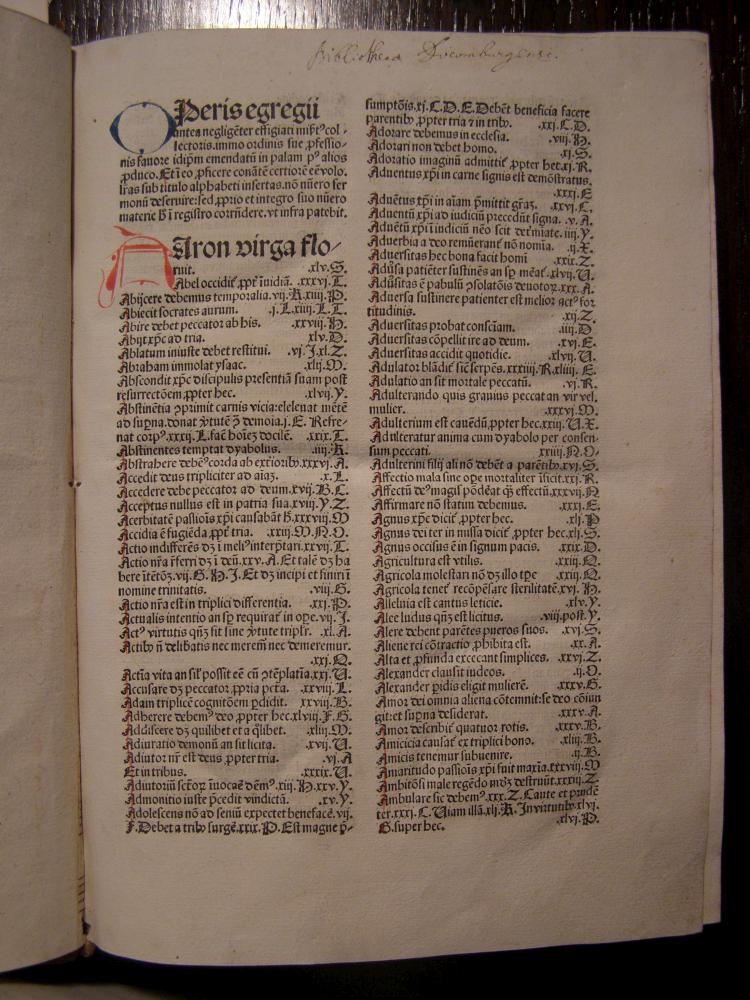 Bibliotheca
OPeris egregii
lectoris.immo ordinis sue ꝓfessio-
nis fauore idip̄m emendatū in palam pꝰ alios
lr̄as sub titulo alphabeti insertas.nō nūero ser
monū deseruire:sed ꝓprio et integro suo nūero
materie ī registro .vt infra patebit.
AAron virga flo/
ruit. .xlv.S.
Abel occidit̄ ꝓpt̄ īuidiā. .xxxvi.T.
Abijcere debemus temporalia.vij.K.xiiij.P.
Abiecit socrates aurum. .j.L.xiiij.L.T.
Abire debet peccator ab his. .xxviij.H.
Abijt xp̄c ad tria. .xlv.D.
Ablatum iniuste debet restitui. .vj.J.xl.Z.
Abraham immolat ysaac. .xlij.M.
Abscondit xp̄c discipulis presentiā suam post
resurrectōem ꝓpter hec. .xlvij.Y.
Abstinētia ꝯprimit carnis vicia:eleuat mētē
nat corpꝰ.xxxij.L.fac̄ hoīez docilē. .xxix.T.
Abstinentes temptat dyabolus. .iiij.K.
Abstrahere debēꝰ corda ab exteriorib.xxxvi.A.
Accedit deus tripliciter ad aīaz. .x.L.
Accedere debe peccator ad deum.xvij.B.C.
Acceptus nullus est in patria sua.xviij.Y.Z.
Acerbitatē passiōis xp̄i causabāt .xxxviij.M
Accidia ē fugiēda ꝓpt̄ tria. .xxiij.M.N.O.
Actio indifferēs dꝫ ī meliꝰ interp̄tari.xxvij.T.
Actio nr̄a r̄ferri dꝫ ī deū.xxv.A.Et talē dꝫ ha
bere ītētōꝫ.vij.G.H.J.Et dꝫ incipi et finiri ī
nomine trinitatis. .viij.G.
Actio nr̄a est in triplici differentia. .xxj.P.
Actualis intentio an sꝑ requirat̄ in oꝑe.vij.J.
Actꝰ virtutis qn̄ꝫ fit sine tripl̄r. .xl.A.
Actib n̄ delibatis nec merem̄ nec demeremur.
.xxj.Q.
Actīa vita an sil̄ possit eē cū ꝯtēplatīa.xxj.U.
Accusare dꝫ peccator ꝓpria pctā. .xxviij.L.
Adam triplicē cognitōem ꝑdidit. .xxviij.B.
Adherere debemꝰ deo ꝓpter hec.xlviij.F.G.
Addiscere dꝫ quilibet et a q̄libet. .xliij.M.
Adiuratio demonū an sit licita. .xvij.U.
Adiutor nr̄ est deus ꝓpter tria. .vj.A
Et in tribus. .xxxix.U.
Adiutoriū sctōꝝ īuocar̄ dēmꝰ.xiij.H.xxv.Y.
Admonitio iuste p̄cedit vindictā. .xv.Y.
Adolescens nō ad seniū expectet benefacē.vij.
F.Debet a trib surgē.xxix.P.Est magne p̄-
sumptōis.xj.C.D.E.Debēt beneficia facere
parentib ꝓpter tria ⁊ in trib. .xxj.C.D.
Adorare debemus in ecclesia. .viij.H.
Adorari non debet homo. .xj.S.
Adoratio imaginū admittit̄ ꝓpter hec.xj.R.
Aduentus xp̄i in carne signis est demōstratus.
.xxxj.E
Aduētus xp̄i in aīam ꝑmittit gr̄aꝫ. .xxvj.C.
Aduentū xp̄i ad iudiciū precedūt signa. .v.A.
Aduētū xp̄i ī iudiciū nēo scit det̄miate.iiij.Y.
Aduerbia a deo remūerant̄ nō nomīa. .ij.X.
Aduersitas hec bona facit homī .xxix.Z.
Adūsa patiēter sustinēs an sꝑ meāt̄.xlvij.U.
Adūsitas ē pabulū ꝯsolatōis deuotoꝝ.xxx.A.
Aduersa sustinere patienter est melior actꝰ for
titudinis. .xij.Z.
Aduersitas probat consciam. .iiij.D
Aduersitas cōpellit ire ad deum. .xvj.E.
Aduersitas accidit quotidie. .xlvij.U.
Adulator blādit̄ sic̄ serpēs.xxxiiij.R.xliij.E.
Adulatio an sit mortale peccatū. .vj.R.
Adulterando quis grauius peccat an vir vel
mulier. .xxxvj.M.
Adulterium est cauēdū ꝓpter hec.xxiij.U.X.
Adulteratur anima cum dyabolo per consen-
sum peccati. .xxiiij.N.O.
Adulterini filij ali nō debēt a parētib.xvj.S.
Affectio mala sine oꝑe mortaliter īficit.xxj.R.
Affectū dꝰ magꝭ pōdēat q̄ꝫ effectū.xxxvij.N
Affirmare nō statim debemus. .xxxj.E.
Agnus xp̄c dicit̄ ꝓpter hec. .xlj.P
Agnus dei ter in missa dicit̄ ꝓpter hec.xlj.S.
Agnus occisus ē in signum pacis. .xxix.D.
Agricultura est vtilis. .xxiij.Q.
Agricola molestari nō dꝫ illo tꝑe .xxiij.Q.
Agricola tenet̄ recōpēsare sterilitatē.xvj.H.
Alleluia est cantus leticie. .xlv.Y.
Alee ludus qn̄ꝫ est licitus. .viij.post.Y.
Alere debent parētes pueros suos. .xvj.S.
Aliene rei cōtractio ꝓhibita est. .xx.A.
Alta et ꝓfunda excecant simplices. .xxvj.Z.
Alexander clausit iudeos. .ij.O.
Alexander ꝑidis eligit mulierē. .xxxv.G.
Amor dei omnia aliena cōtemnit:se deo cōiun
git:et suꝑna desiderat. .xxxv.A.
Amor describit̄ quatuor rotis. .xxxv.B.
Amicicia causat̄ ex triplici bono. .xliij.B.
Amicis tenemur subuenire. .ij.B.
Amaritudo passiōis xp̄i fuit maxīa.xxxviij.M
Ambitōsi male regēdo mūdū destruūt.xxxiij.Z.
Ambulare sic debemꝰ.xxx.Z.Caute et prudē
ter.xxxj.C.Uiam illā.xlj.K.In virtutib.xlvj.
G.super hec. .xlvj.P.